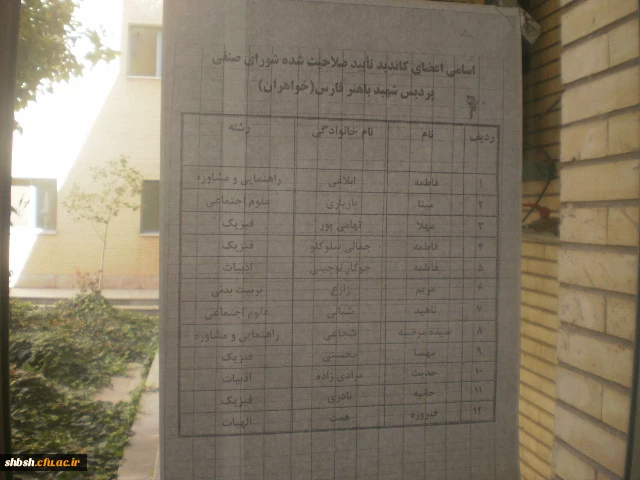 اسامی اعضای کاندید تایید صلاحیت شده شورای صنفی
پردیس شهید باهنر فارس(خواهران)
ردیف نام نام خانوادگی رشته
۱ فاطمه ابلاغی راهنمایی و مشاوره
۲ مینا بازیاری علوم اجتماعی
۳ مهلا تهامی پور فیزیک
۴ فاطمه جمالی سلوکلو فیزیک
۵ فاطمه جوکار ادبیات
۶ مریم زارع تربیت بدنی
۷ ناهید شبانی علوم اجتماعی
۸ سیده مرضیه شجاعی راهنمایی و مشاوره
۹ مهسا محسنی فیزیک
۱۰ حدیث مرادی زاده ادبیات
۱۱ نادری فیزیک
۱۲ فیروزه همت الهیات
shbsh.cfu.ac.ir